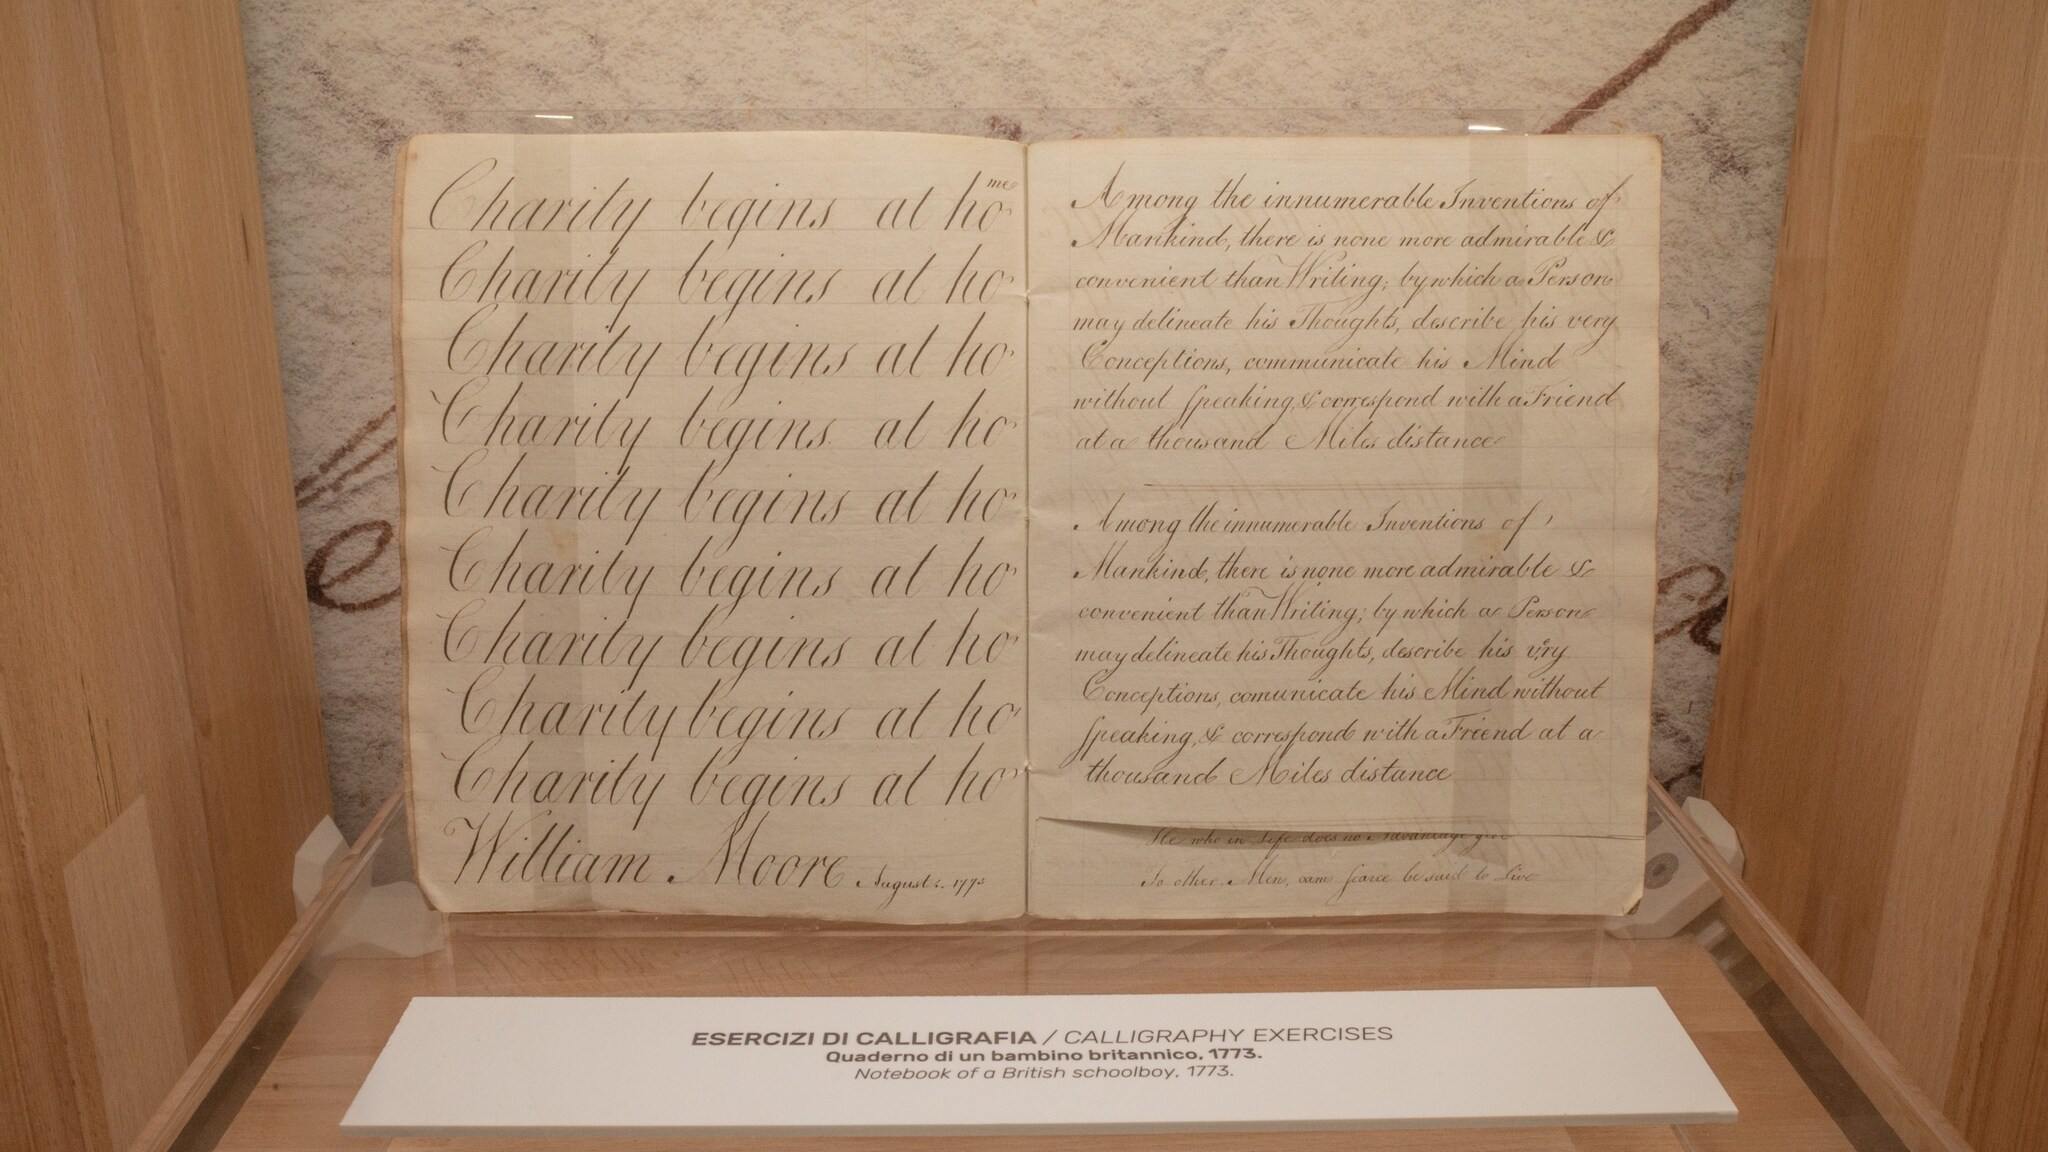 Charity begins at ho me
Charity begins at ho
Charity begins at ho
Charity begins at ho
Charity begins at ho
Charity begins at ho
Charity begins at ho
Charity begins at ho
Charity begins at ho
William Moore August: 1773
Among the innumerable Inventions of
Mankind, there is none more admirable &
convenient than Writing; by which a Person
may delineate his Thoughts, describe his very
Conceptions, communicate his Mind
without ſpeaking, & correspond with a Friend
at a thousand Miles distance
Among the innumerable Inventions of
Mankind, there is none more admirable &
convenient than Writing; by which a Person
may delineate his Thoughts, describe his very
Conceptions, comunicate his Mind without
ſpeaking, & correspond with a Friend at a
thousand Miles distance
He who in Life does no Advantage give
To other Men, can ſcarce be said to Live
ESERCIZI DI CALLIGRAFIA / CALLIGRAPHY EXERCISES
Quaderno di un bambino britannico, 1773.
Notebook of a British schoolboy, 1773.